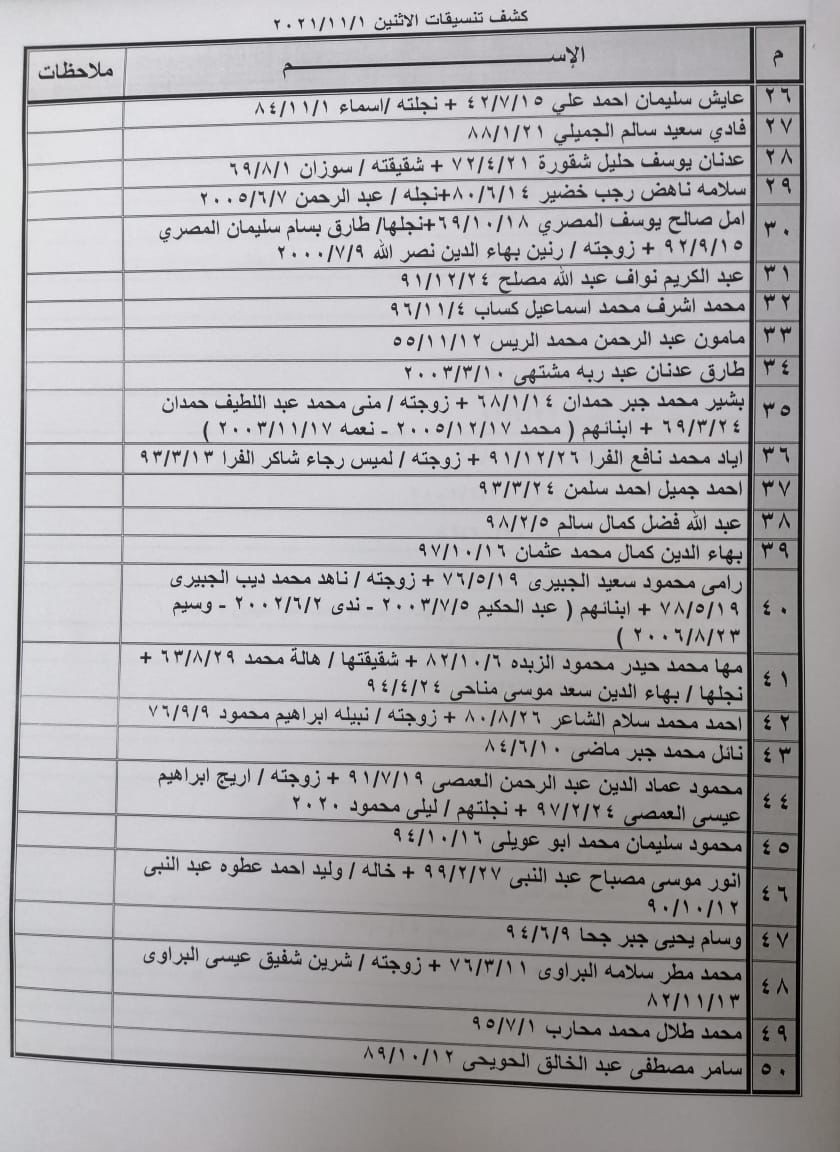 كشف تنسيقات الاثنين ٢٠٢١/١١/١
م الإســـــــــــــــم ملاحظات
٢٦ عايش سليمان احمد علي ٤٢/٧/١٥ + نجلته /اسماء ٨٤/١١/١
٢٧ فادي سعيد سالم الجميلي ٨٨/١/٢١
٢٨ عدنان يوسف خليل شقورة ٧٢/٤/٢١ + شقيقته / سوزان ٦٩/٨/١
٢٩ سلامه ناهض رجب خضير ٨٠/٦/١٤+نجله / عبد الرحمن ٢٠٠٥/٦/٧
٣٠ امل صالح يوسف المصري ٦٩/١٠/١٨+نجلها/ طارق بسام سليمان المصري
٩٢/٩/١٥ + زوجته / رنين بهاء الدين نصر الله ٢٠٠٠/٧/٩
٣١ عبد الكريم نواف عبد الله مصلح ٩١/١٢/٢٤
٣٢ محمد اشرف محمد اسماعيل كساب ٩٦/١١/٤
٣٣ مامون عبد الرحمن محمد الريس ٥٥/١١/١٢
٣٤ طارق عدنان عبد ربه مشتهى ٢٠٠٣/٣/١٠
٣٥ بشير محمد جبر حمدان ٦٨/١/١٤ + زوجته / منى محمد عبد اللطيف حمدان
٦٩/٣/٢٤ + ابنائهم ( محمد ٢٠٠٥/١٢/١٧ - نعمه ٢٠٠٣/١١/١٧ )
٣٦ اياد محمد نافع الفرا ٩١/١٢/٢٦ + زوجته / لميس رجاء شاكر الفرا ٩٣/٣/١٣
٣٧ احمد جميل احمد سلمن ٩٣/٣/٢٤
٣٨ عبد الله فضل كمال سالم ٩٨/٢/٥
٣٩ بهاء الدين كمال محمد عثمان ٩٧/١٠/١٦
٤٠ رامى محمود سعيد الجبيرى ٧٦/٥/١٩ + زوجته / ناهد محمد ديب الجبيرى
٧٨/٥/١٩ + ابنائهم ( عبد الحكيم ٢٠٠٣/٧/٥ - ندى ٢٠٠٢/٦/٢ - وسيم
٢٠٠٦/٨/٢٣ )
٤١ مها محمد حيدر محمود الزبده ٨٢/١٠/٦ + شقيقتها / هالة محمد ٦٣/٨/٢٩ +
نجلها / بهاء الدين سعد موسى مناحى ٩٤/٤/٢٤
٤٢ احمد محمد سلام الشاعر ٨٠/٨/٢٦ + زوجته / نبيله ابراهيم محمود ٧٦/٩/٩
٤٣ نائل محمد جبر ماضى ٨٤/٦/١٠
٤٤ محمود عماد الدين عبد الرحمن العمصى ٩١/٧/١٩ + زوجته / اريج ابراهيم
عيسى العمصى ٩٧/٢/٢٤ + نجلتهم / ليلى محمود ٢٠٢٠
٤٥ محمود سليمان محمد ابو عويلى ٩٤/١٠/١٦
٤٦ انور موسى مصباح عبد النبى ٩٩/٢/٢٧ + خاله / وليد احمد عطوه عبد النبى
٩٠/١٠/١٢
٤٧ وسام يحيى جبر جحا ٩٤/٦/٩
٤٨ محمد مطر سلامه البراوى ٧٦/٣/١١ + زوجته / شرين شفيق عيسى البراوى
٨٢/١١/١٣
٤٩ محمد طلال محمد محارب ٩٥/٧/١
٥٠ سامر مصطفى عبد الخالق الحويحى ٨٩/١٠/١٢